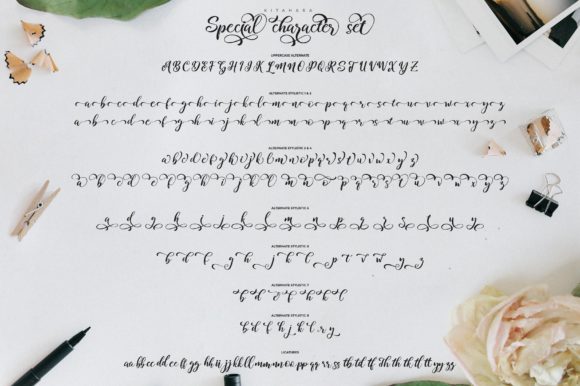 KITAHARA
Special character set
UPPERCASE ALTERNATE
A B C D E F G H I J K L M N O P Q R S T U V W X Y Z
ALTERNATE STYLISTIC 1 & 2
a b c d e f g h i j k l m n o p q r s t u v w x y z
a b c d e f g h i j k l m n o p q r s t u v w x y z
ALTERNATE STYLISTIC 3 & 4
a b c d e f g h i j k l m n o p q r s t u v w x y z
a b c d e f g h i j k l m n o p q r s t u v w x y z
ALTERNATE STYLISTIC 5
a d g h i j k l m n p q
ALTERNATE STYLISTIC 6
b d f g h j k l p t v w y z
ALTERNATE STYLISTIC 7
b d f h k l
ALTERNATE STYLISTIC 8
b d f h j k l r y
LIGATURES
aa bb cc dd ee ff gg hh ii jj kk ll mm oo pp qq rr ss tb td tf th tk tl tt yy zz